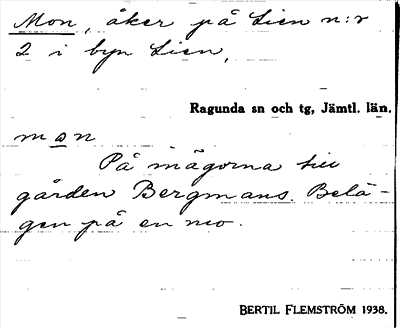 Mon, åker på Lien n:r
2 i byn Lien,
Ragunda sn och tg, Jämtl. län.
mon
På inägorna till
gården Bergmans. Belä-
gen på en mo.
BERTIL FLEMSTRÖM 1938.